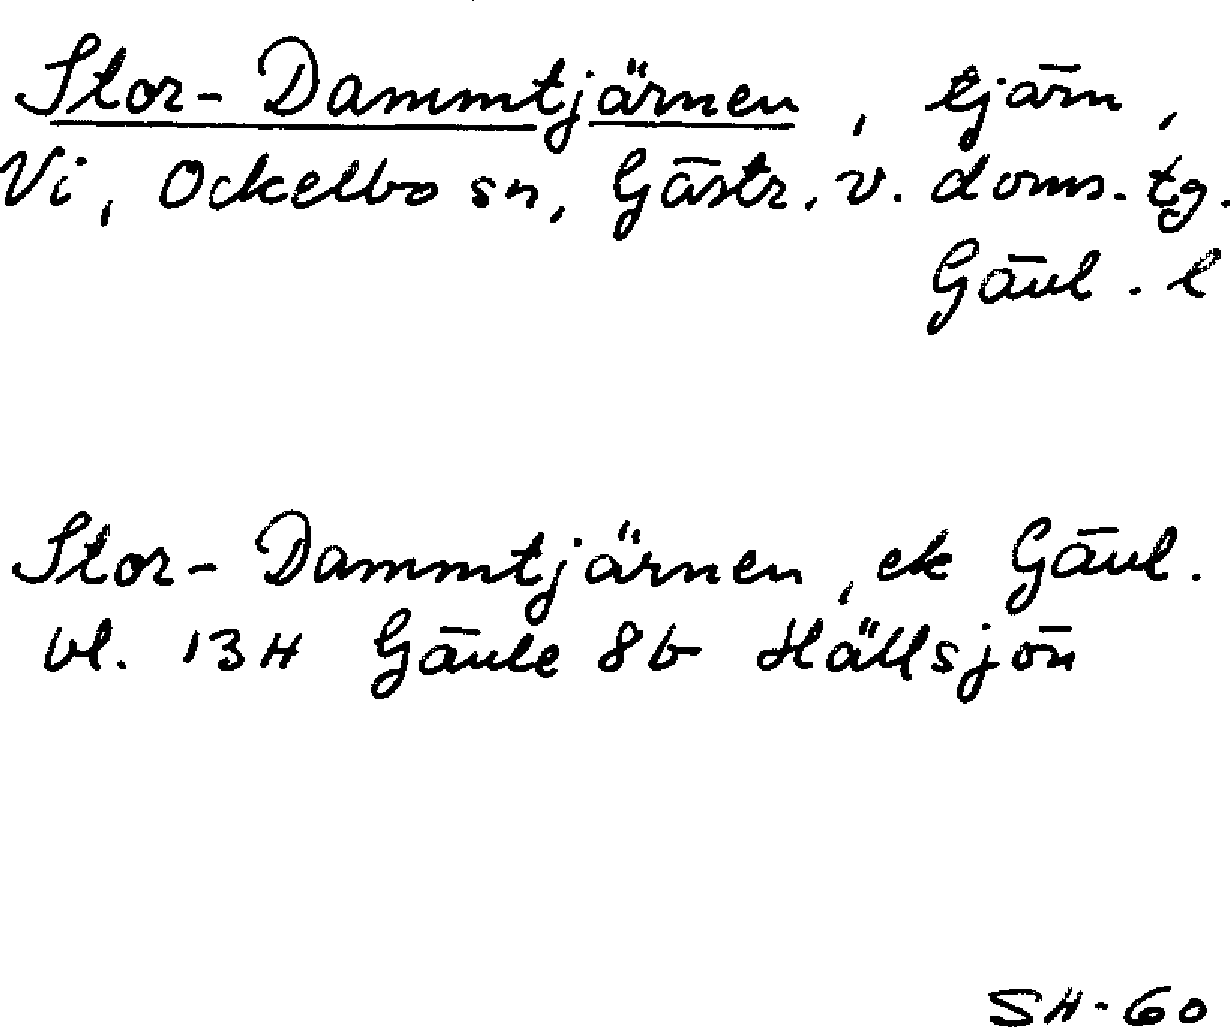 Stor-Dammtjärnen, tjärn,
Vi, Ockelbo sn, Gästr. v. doms. tg.
Gävl. l
Stor-Dammtjärnen, ek Gävl.
bl. 13H Gävle 8b Hällsjön
SH-60